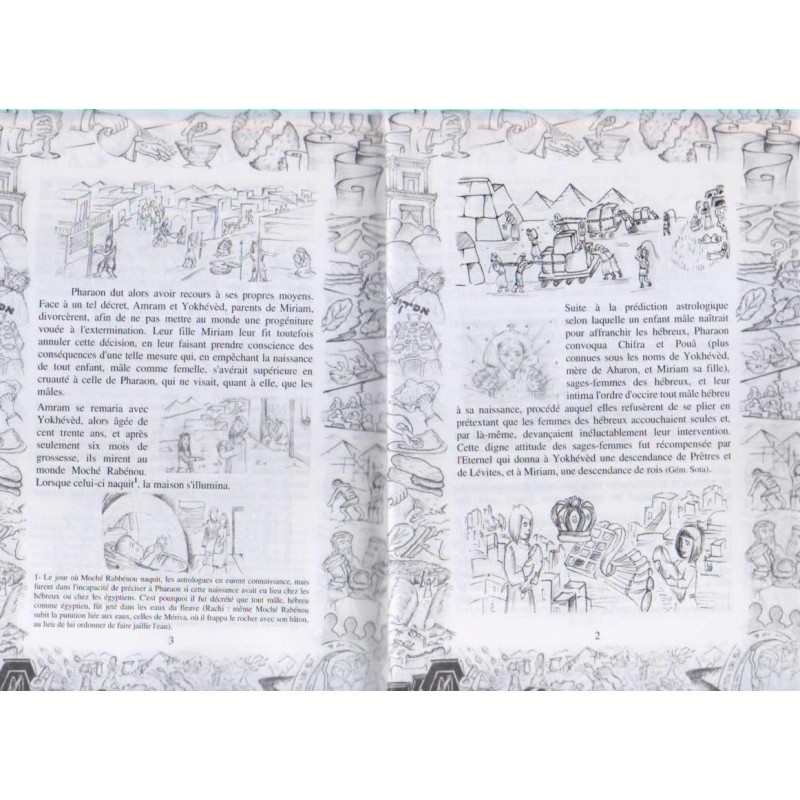 Suite à la prédiction astrologique
selon laquelle un enfant mâle naîtrait
pour affranchir les hébreux, Pharaon
convoqua Chifra et Pouâ (plus
connues sous les noms de Yokhévèd,
mère de Aharon, et Miriam sa fille),
sages-femmes des hébreux, et leur
intima l'ordre d'occire tout mâle hébreu
à sa naissance, procédé auquel elles refusèrent de se plier en
prétextant que les femmes des hébreux accouchaient seules et,
par là-même, devançaient inéluctablement leur intervention.
Cette digne attitude des sages-femmes fut récompensée par
l'Eternel qui donna à Yokhévèd une descendance de Prêtres et
de Lévites, et à Miriam, une descendance de rois (Gém. Sota).
2
Pharaon dut alors avoir recours à ses propres moyens.
Face à un tel décret, Amram et Yokhévèd, parents de Miriam,
divorcèrent, afin de ne pas mettre au monde une progéniture
vouée à l'extermination. Leur fille Miriam leur fit toutefois
annuler cette décision, en leur faisant prendre conscience des
conséquences d'une telle mesure qui, en empêchant la naissance
de tout enfant, mâle comme femelle, s'avérait supérieure en
cruauté à celle de Pharaon, qui ne visait, quant à elle, que les
mâles.
Amram se remaria avec
Yokhévèd, alors âgée de
cent trente ans, et après
seulement six mois de
grossesse, ils mirent au
monde Moché Rabénou.
Lorsque celui-ci naquit¹, la maison s'illumina.
1- Le jour où Moché Rabbénou naquit, les astrologues en eurent connaissance, mais
furent dans l'incapacité de préciser à Pharaon si cette naissance avait eu lieu chez les
hébreux ou chez les égyptiens. C'est pourquoi il fut décrété que tout mâle, hébreu
comme égyptien, fût jeté dans les eaux du fleuve (Rachi : même Moché Rabénou
subit la punition liée aux eaux, celles de Mériva, où il frappa le rocher avec son bâton,
au lieu de lui ordonner de faire jaillir l'eau).
3